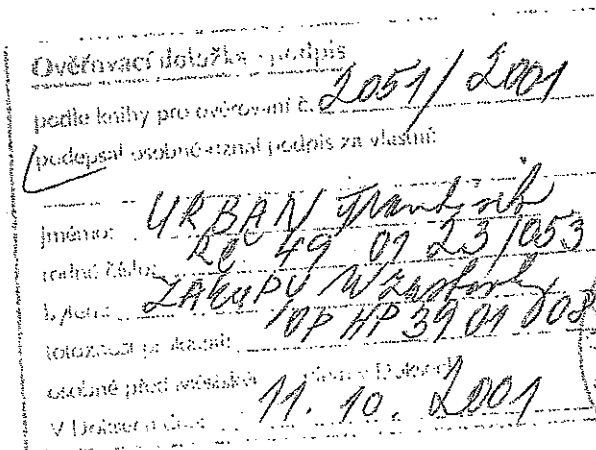 Ověřovací doložka - podpis
podle knihy pro ověřování č. 2051/2001
podepsal osobně-uznal podpis za vlastní:
jméno: URBAN František
rodné číslo: RČ 49 01 23/053
bytem: ZÁKUPY
totožnost prokázal: OP HP 39 01 008
osobně před v Doksech
V Doksech dne 11. 10. 2001